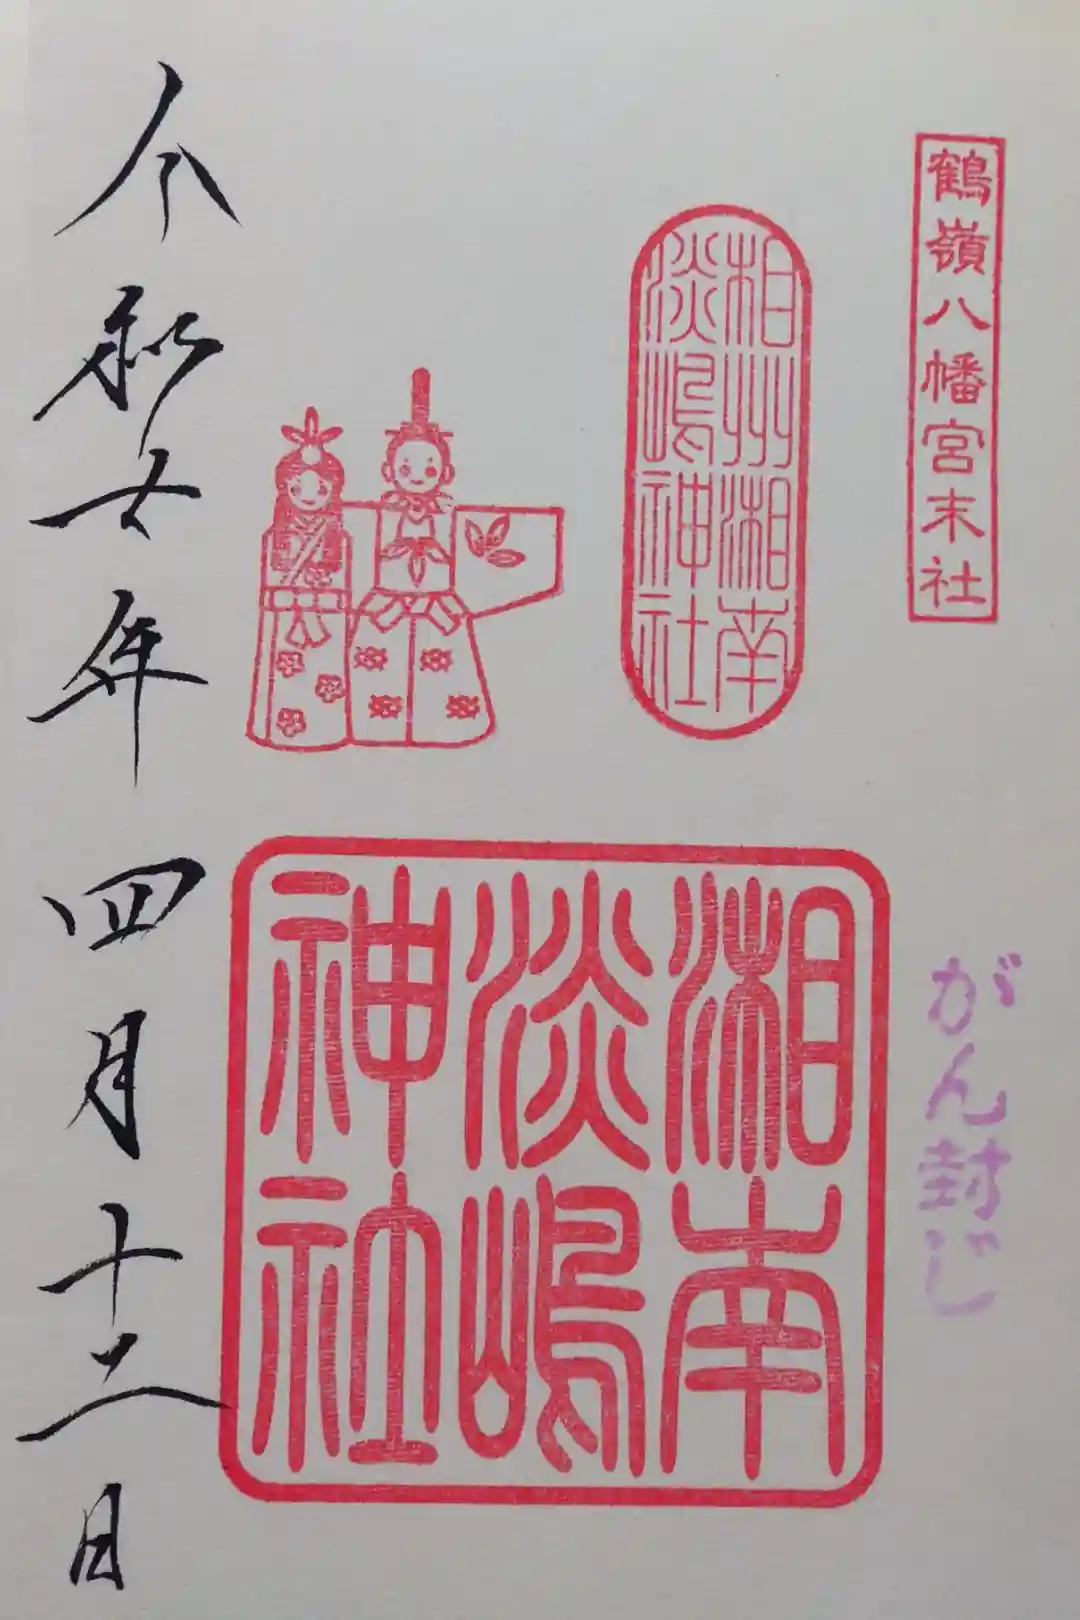 鶴嶺八幡宮末社
がん封じ
相州湘南
淡嶋神社
湘南
淡嶋
神社
令和六年四月十二日